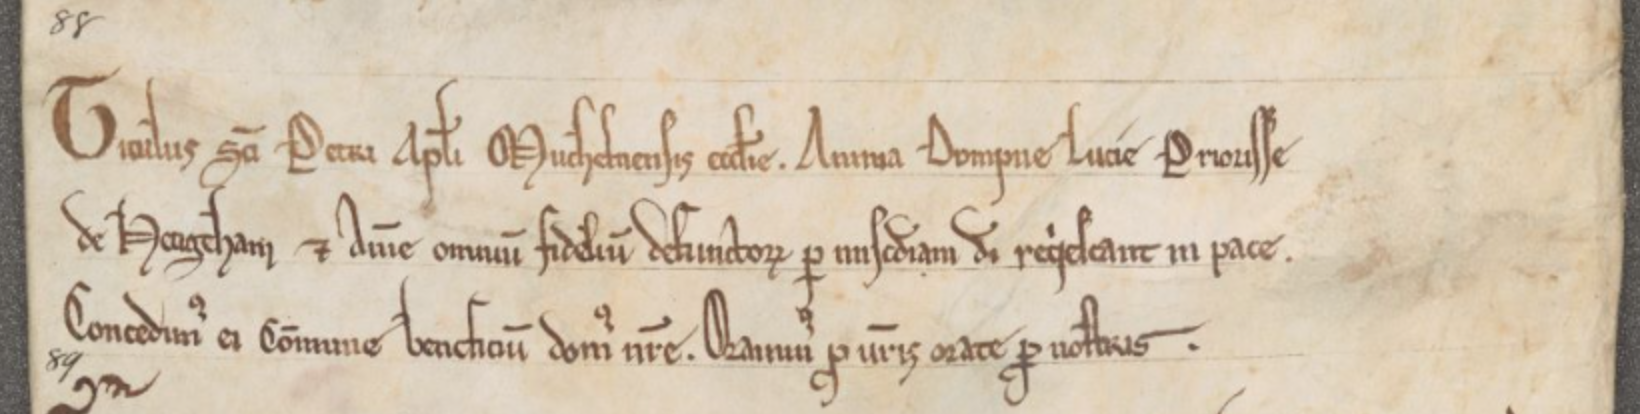 88
Titulus Sc̄i Petri Apl̄i Muchelnensis eccl̄ie. Anima Dompne Lucie Priorisse
de Hengham ⁊ Aīe omniū fideliū defunctoꝝ ꝑ mis̄cdiam dī reqͥescant in pace.
Concedimꝰ ei Cōmune beneficiū domꝰ nr̄e. Oramꝰ ꝓ ur̄is orate ꝓ nostris.
89